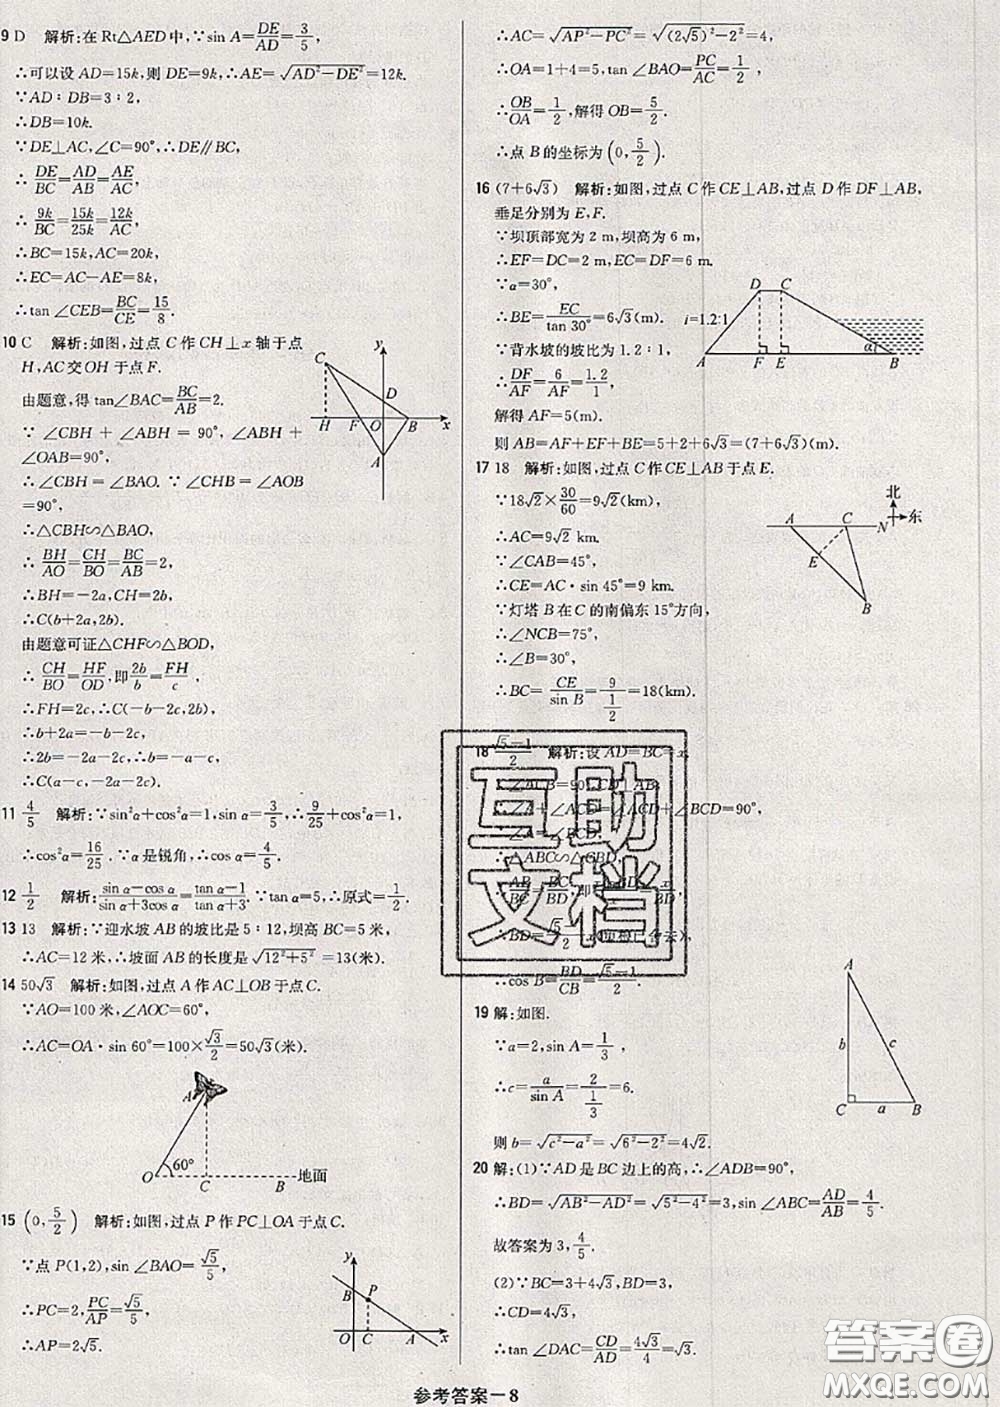 9 D 解析:在 Rt△AED 中,∵sin A=DE/AD=3/5,
∴可以设 AD=15k,则 DE=9k,∴AE=√(AD²-DE²)=12k.
∵AD∶DB=3∶2,
∴DB=10k.
∵DE⊥AC,∠C=90°,∴DE∥BC,
∴DE/BC=AD/AB=AE/AC,
∴9k/BC=15k/25k=12k/AC,
∴BC=15k,AC=20k,
∴EC=AC-AE=8k,
∴tan∠CEB=BC/CE=15/8.
10 C 解析:如图,过点 C 作 CH⊥x 轴于点
H,AC 交 OH 于点 F.
由题意,得 tan∠BAC=BC/AB=2.
∵∠CBH+∠ABH=90°,∠ABH+
∠OAB=90°,
∴∠CBH=∠BAO. ∵∠CHB=∠AOB
=90°,
∴△CBH∽△BAO,
∴BH/AO=CH/BO=BC/AB=2,
∴BH=-2a,CH=2b,
∴C(b+2a,2b).
由题意可证△CHF∽△BOD,
∴CH/BO=HF/OD,即2b/b=FH/c,
∴FH=2c,∴C(-b-2c,2b),
∴b+2a=-b-2c,
∴C(a-c,-2a-2c).
y
C
D
H F O B x
A
11 4/5 解析:∵sin²α+cos²α=1,sin α=3/5,∴9/25+cos²α=1,
∴cos²α=16/25. ∵α是锐角,∴cos α=4/5.
12 1/2 解析:(sin α-cos α)/(sin α+3cos α)=(tan α-1)/(tan α+3). ∵tan α=5,∴原式=1/2.
13 13 解析:∵迎水坡 AB 的坡比是 5∶12,坝高 BC=5 米,
∴AC=12 米,∴坡面 AB 的长度是√(12²+5²)=13(米).
14 50√3 解析:如图,过点 A 作 AC⊥OB 于点 C.
∵AO=100 米,∠AOC=60°,
∴AC=OA·sin 60°=100×√3/2=50√3(米).
A
60°
O C B 地面
15 (0,5/2) 解析:如图,过点 P 作 PC⊥OA 于点 C.
∵点 P(1,2),sin∠BAO=√5/5,
∴PC=2,PC/AP=√5/5,
∴AP=2√5.
y
B P
O C A x
∴AC=√(AP²-PC²)=√((2√5)²-2²)=4,
∴OA=1+4=5,tan∠BAO=PC/AC=1/2,
∴OB/OA=1/2,解得 OB=5/2.
∴点 B 的坐标为(0,5/2).
16 (7+6√3) 解析:如图,过点 C 作 CE⊥AB,过点 D 作 DF⊥AB,
垂足分别为 E,F.
∵坝顶部宽为 2 m,坝高为 6 m,
∴EF=DC=2 m,EC=DF=6 m.
∵α=30°,
∴BE=EC/tan 30°=6√3(m).
∵背水坡的坡比为 1.2∶1,
∴DF/AF=6/AF=1.2/1,
解得 AF=5(m).
则 AB=AF+EF+BE=5+2+6√3=(7+6√3)(m).
D C
i=1.2:1
α
A F E B
17 18 解析:如图,过点 C 作 CE⊥AB 于点 E.
∵18√2×30/60=9√2(km),
∴AC=9√2 km.
∵∠CAB=45°,
∴CE=AC·sin 45°=9 km.
∵灯塔 B 在 C 的南偏东 15°方向,
∴∠NCB=75°,
∴∠B=30°,
∴BC=CE/sin B=9/(1/2)=18(km).
北
东
A C N
E
B
18 (√5-1)/2 解析:设 AD=BC=x,
∵∠ACB=90°,CD⊥AB,
∴∠A+∠ACD=∠ACD+∠BCD=90°,
∴∠A=∠BCD,
∴△ABC∽△CBD,
∴cos B=BD/CB=(√5-1)/2.
19 解:如图.
∵a=2,sin A=1/3,
∴c=a/sin A=2/(1/3)=6.
则 b=√(c²-a²)=√(6²-2²)=4√2.
A
b c
C a B
20 解:(1)∵AD 是 BC 边上的高,∴∠ADB=90°,
∴BD=√(AB²-AD²)=√(5²-4²)=3,sin∠ABC=AD/AB=4/5.
故答案为 3,4/5.
(2)∵BC=3+4√3,BD=3,
∴CD=4√3,
∴tan∠DAC=CD/AD=4√3/4=√3,
互助
文档
答案圈
MXQE.COM
参考答案－8